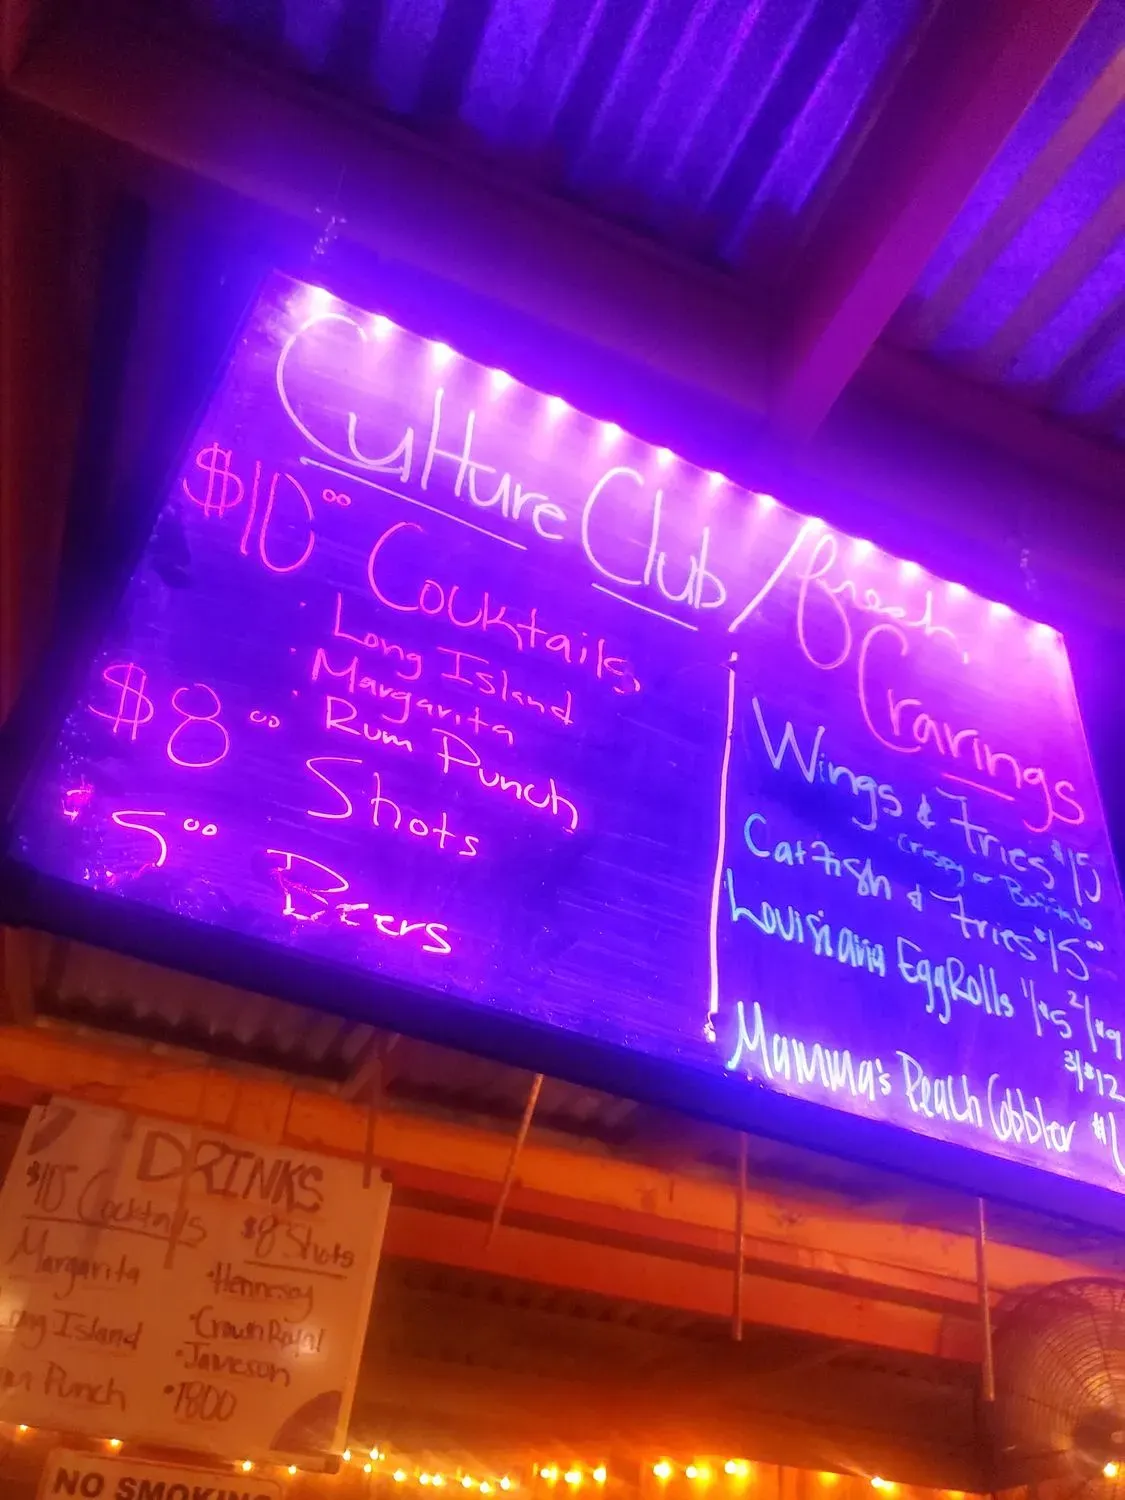 Culture Club / fresh
Cravings
$10.00 Cocktails
· Long Island
· Margarita
· Rum Punch
$8.00 Shots
$5.00 Beers
Wings & Fries $15
Catfish & Fries $15.00
Louisiana EggRolls 1/$5 2/$9
3/$12
Mamma's Peach Cobbler
DRINKS
$10 Cocktails
Margarita
Long Island
Punch
$8 Shots
•Hennessy
•Crown Royal
•Jameson
•1800
NO SMOKING